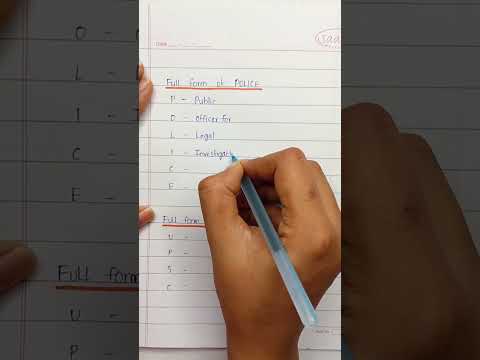 Full form of POLICE
P - Public
O - Officer for
L - Legal
I - Investigati
C -
E -
Full form
U -
P -
S -
C -